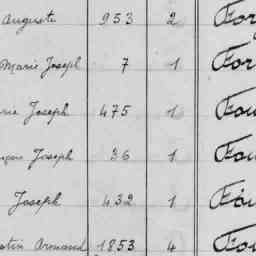 Auguste 953 2 For
Marie Joseph 7 1 For
rie Joseph 475 1 Fou
çois Joseph 36 1 Fou
Joseph 432 1 Fou
stin Armand 1853 4 Fou